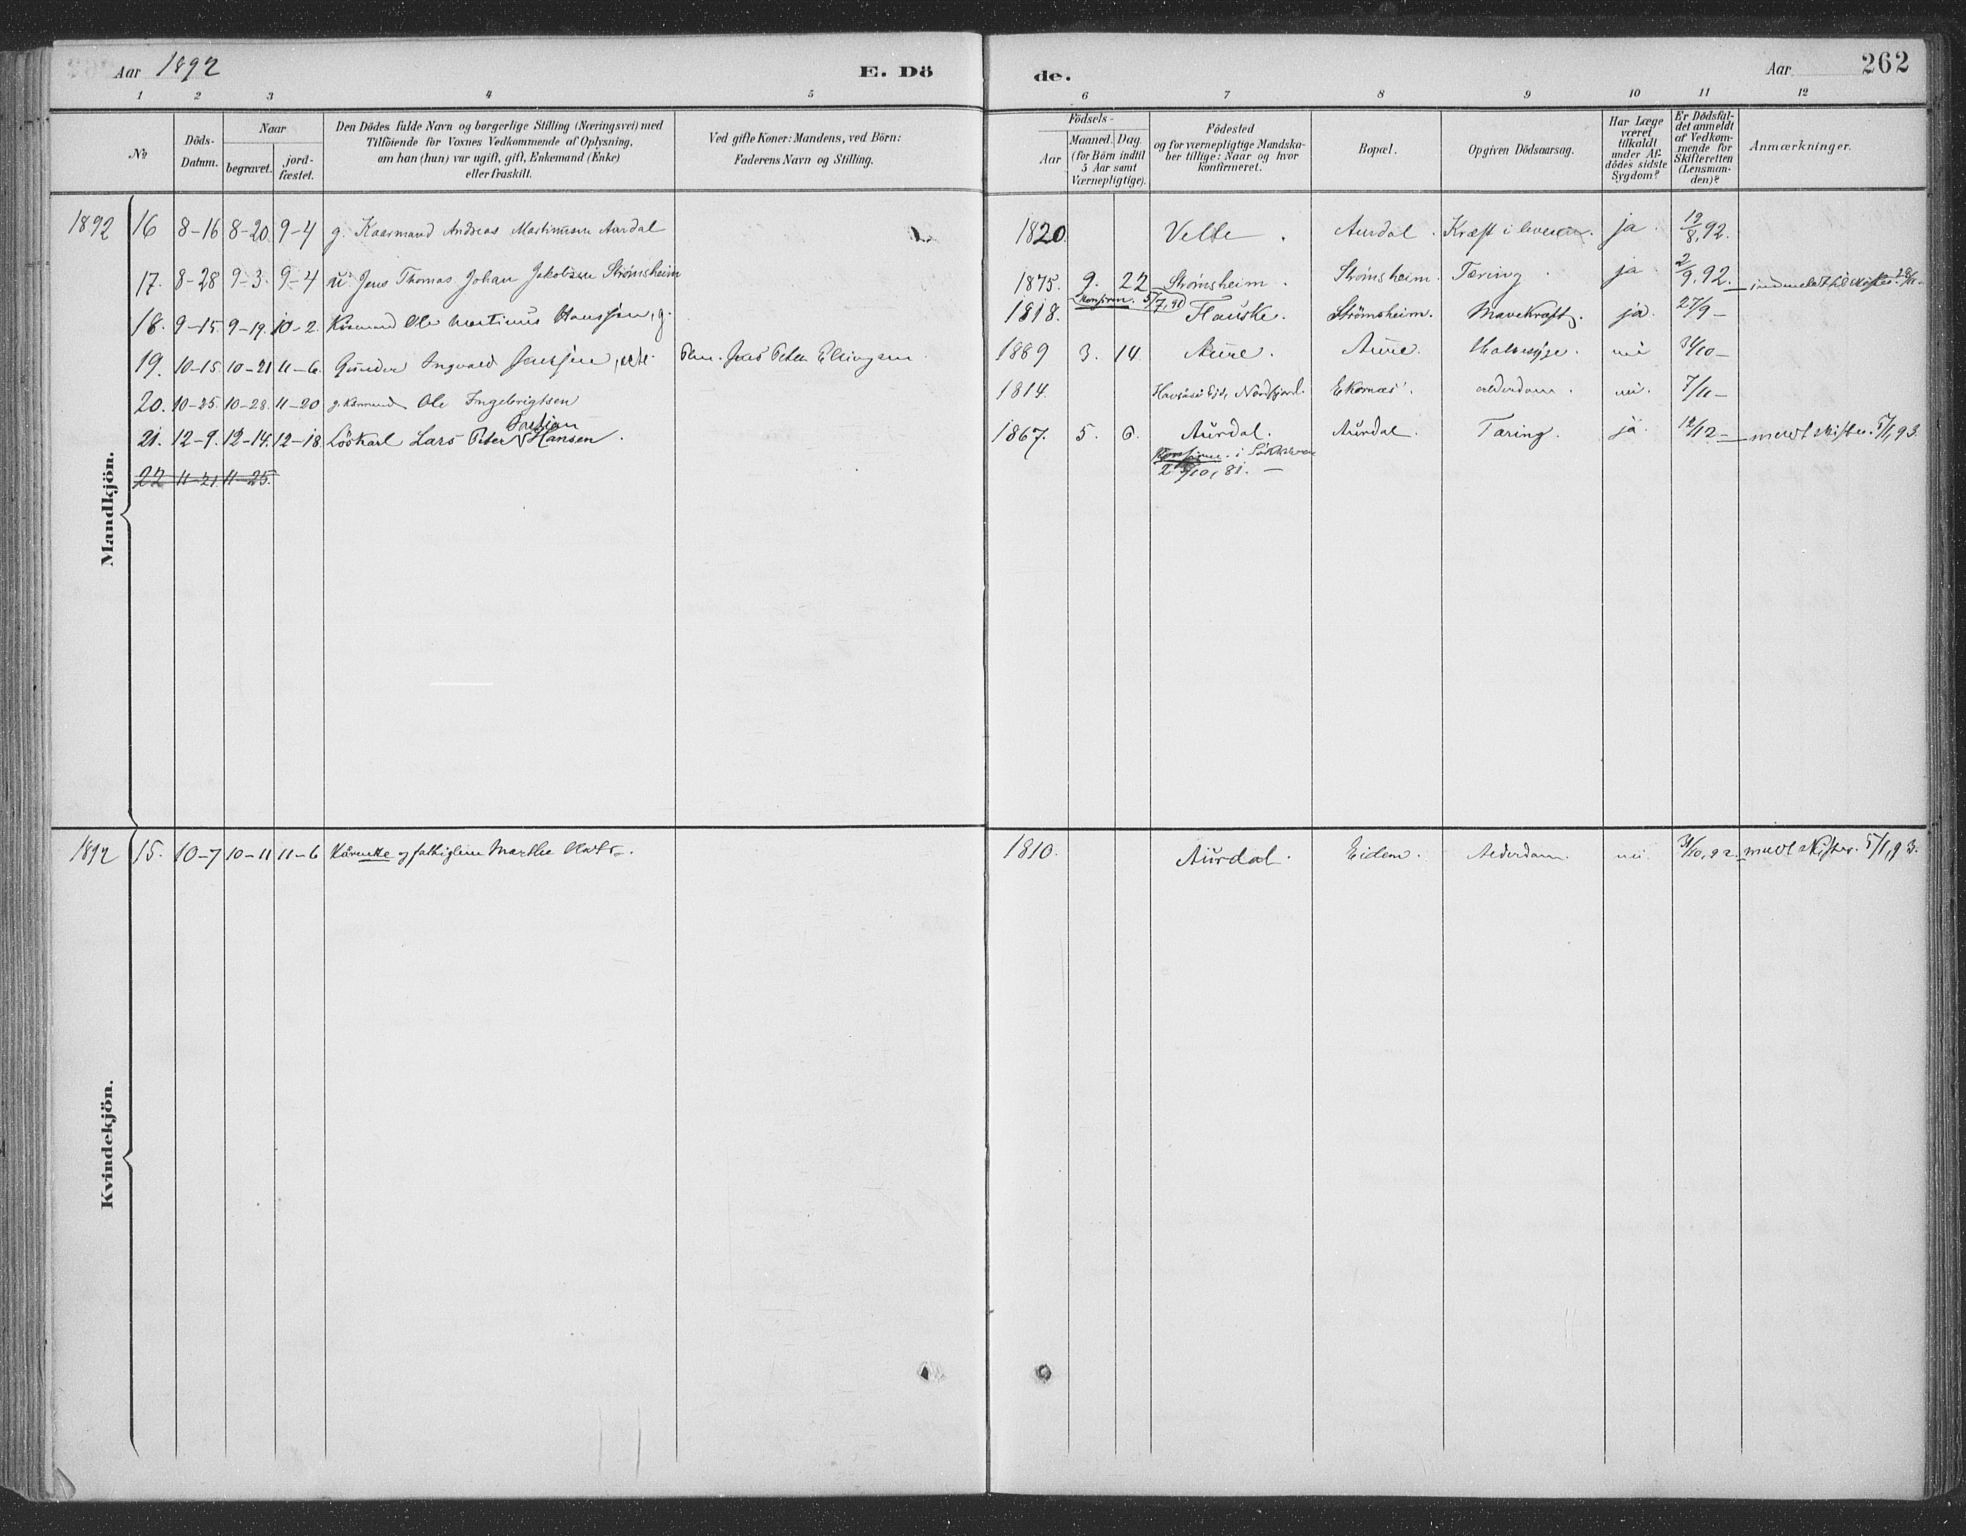 Aar 1892 E. Dö de. Aar 262
1 2 3 4 5 6 7 8 9 10 11 12
No
Döds-Datum.
Naar
begravet.
jord-fæstet.
Den Dödes fulde Navn og borgerlige Stilling (Næringsvei) med
Tilföiende for Voxnes Vedkommende af Oplysning,
om han (hun) var ugift, gift, Enkemand (Enke)
eller fraskilt.
Ved gifte Koner: Mandens, ved Börn:
Faderens Navn og Stilling.
Födsels-
Aar
Maaned. Dag.
(for Börn indtil
5 Aar samt
Værnepligtige).
Födested
og for værnepligtige Mandska-
ber tillige: Naar og hvor
konfirmeret.
Bopæl.
Opgiven Dödsaarsag.
Har Læge
været
tilkaldt
under Af-
dödes sidste
Sygdom?
Er Dödsfal-
det anmeldt
af Vedkom-
mende for
Skifteretten
(Lensman-
den)?
Anmærkninger.
Mandkjön.
1892 16 8-16 8-20 9-4 g. Kaarmand Andreas Martinusen Aurdal 1820. Velle. Aurdal. Kræft i leveren. ja. 19/8, 92.
17. 8-28 9-3. 9-4 u. Jens Thomas Johan Jakobsen Strømsheim 1875. 9. 22 Strømsheim. Strømsheim. Tæring. ja 2/9, 92.
Konfirm. 5/7, 91
18. 9-15. 9-19. 10-2. Kaarmand Ole Martinus Hanssen, g. 1818. Flauske. Strømsheim. Mavekræft. ja. 27/9 -
19. 10-15. 10-21 11-6. Gunder Ingvald Jenssen, ægte. Plm. Jens Peter Ellingsen. 1889 3. 14. Aure. Aure. Halssyge. nei 31/10 -
20. 10-25. 10-28. 11-20 g. Kaarmand Ole Ingebrigtsen 1814. Nordfjord. Ekornæs. alderdom. nei. 7/11 -
Bastian
21. 12-9. 12-14. 12-18 Löskarl Lars Peter Hansen. 1867. 5. 6. Aurdal. Aurdal. Tæring. ja 12/12 - meldt skifter. 5/1, 93.
Konfirm. i
2/10, 81. -
22 11-21. 11-25.
Kvindekjön.
1892 15. 10-7 10-11 11-6 Kårenke og fattiglem Marthe 1810. Aurdal. Eidem. Alderdom. nei 31/10, 92. meldt skifter. 5/1, 93.